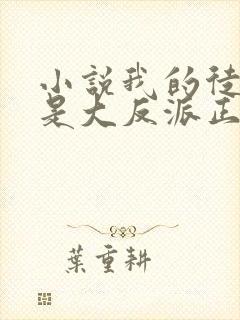 小説我的徒
是大反派正
葉重耕